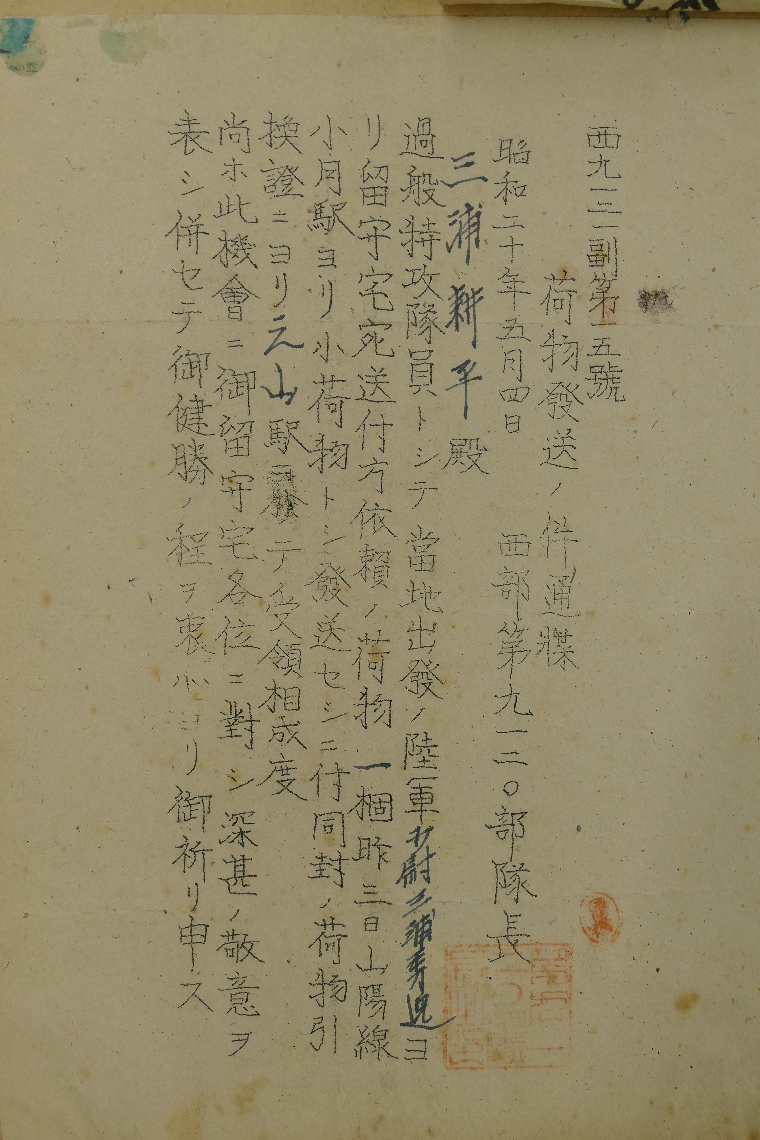 西九一二副第一五號
荷物發送ノ件通牒
昭和二十年五月四日 西部第九一二〇部隊長
三浦耕平殿
過般特攻隊員トシテ當地出發ノ陸軍少尉三浦秀逸ヨ
リ留守宅宛送付方依賴ノ荷物一梱昨三日山陽線
小月駅ヨリ小荷物トシ發送セシニ付同封ノ荷物引
換證ニヨリ元山駅ニテ受領相成度
尚ホ此機會ニ御留守宅各位ニ對シ深甚ノ敬意ヲ
表シ併セテ御健勝ノ程ヲ衷心ヨリ御祈リ申ス